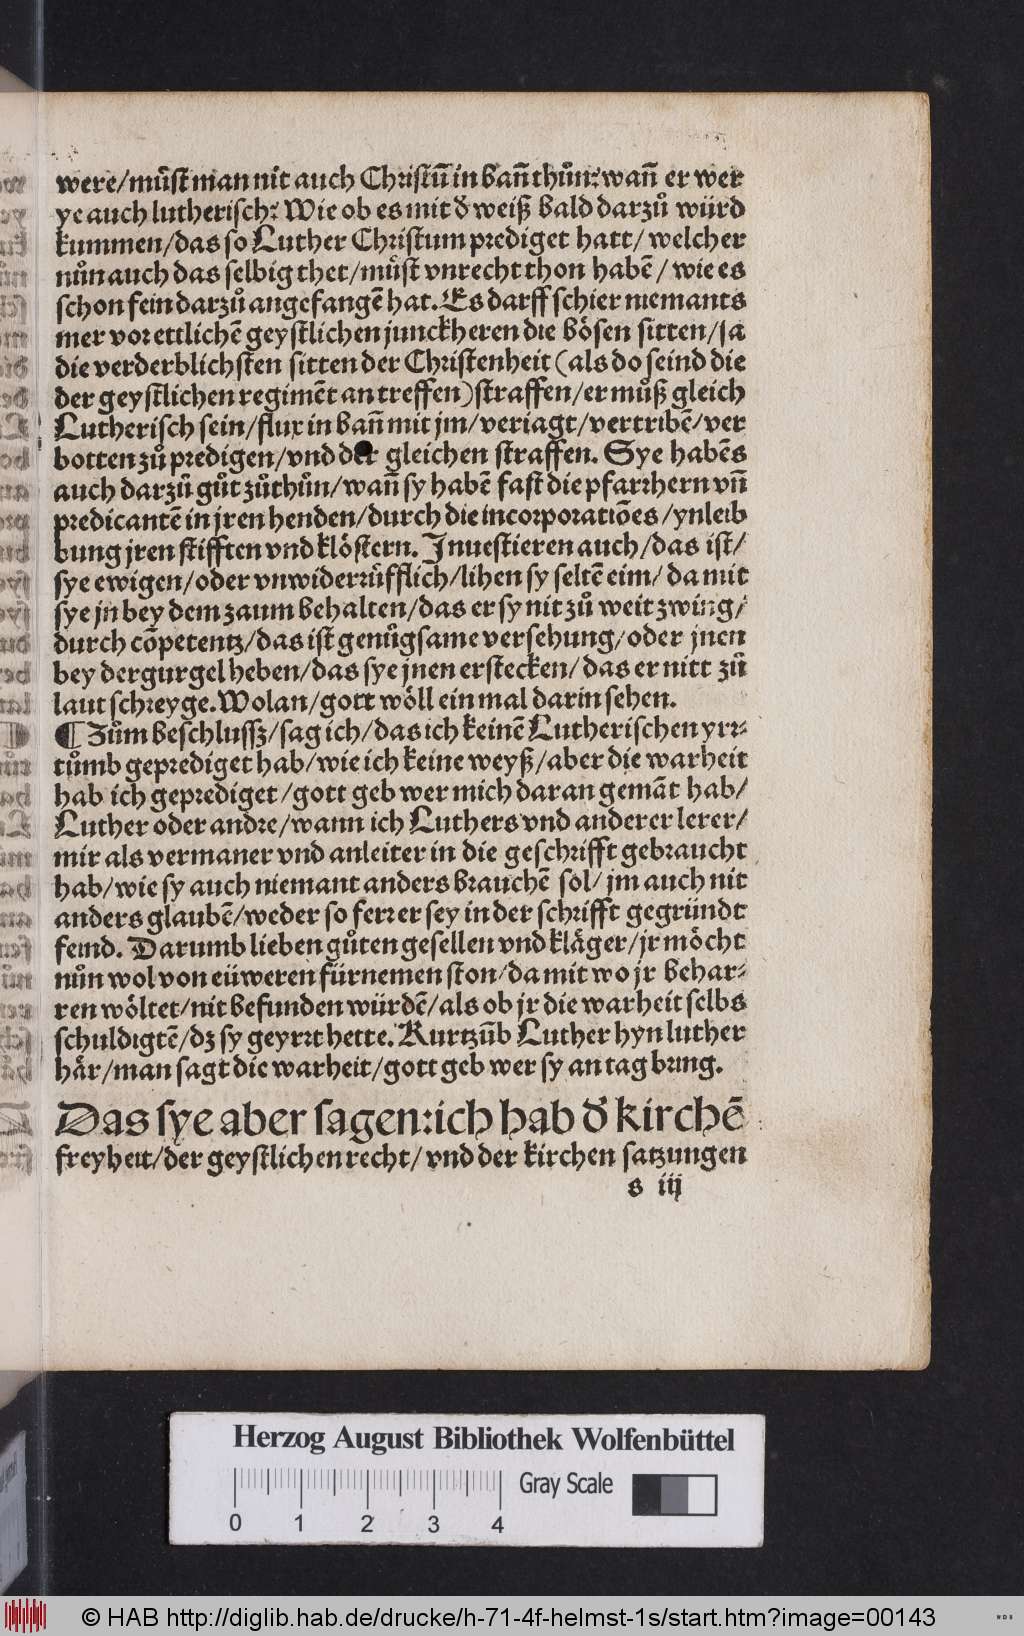 were/muͦst man nit auch Christū in bañ thuͦn: wañ er wer
ye auch lutherisch: Wie ob es mit d̕ weiß bald darzuͦ würd
kummen/das so Luther Christum prediget hatt/ welcher
nuͦn auch das selbig thet/muͤst vnrecht thon habē/ wie es
schon fein darzuͦ angefangē hat. Es darff schier niemants
mer vor ettlichē geystlichen junckheren die boͤsen sitten/ja
die verderblichsten sitten der Christenheit (als do seind die
der geystlichen regimēt an treffen) straffen/er muͦß gleich
Lutherisch sein/flux in bañ mit jm/veriagt/vertribē/ver
botten zuͦ predigen/vnd der gleichen straffen. Sye habēs
auch darzuͦ guͦt zuͦthuͦn/wañ sy habē fast die pfarrhern vñ
predicantē in jren henden/durch die incorporatiōes/ynleib
bung jren stifften vnd kloͤstern. Inuestieren auch/das ist/
sye ewigen/oder vnwiderruͤfflich/lihen sy seltē eim/ da mit
sye jn bey dem zaum behalten/das er sy nit zuͦ weit zwing/
durch cōpetentz/das ist genuͦgsame versehung/oder jnen
bey der gurgel heben/das sye jnen erstecken/ das er nitt zuͦ
laut schreyge. Wolan/gott woͤll ein mal darin sehen.
¶ Zuͦm beschlussz/sag ich/das ich keinē Lutherischen yrr-
tuͦmb geprediget hab/wie ich keine weyß/aber die warheit
hab ich geprediget/gott geb wer mich daran gemāt hab/
Luther oder andre/wann ich Luthers vnd anderer lerer/
mir als vermaner vnd anleiter in die geschrifft gebraucht
hab/wie sy auch niemant anders brauchē sol/ jm auch nit
anders glaubē/weder so ferr er sey in der schrifft gegründt
feind. Darumb lieben guͦten gesellen vnd klaͤger/jr moͤcht
nuͦn wol von eüweren fürnemen ston/da mit wo jr behar-
ren woͤltet/nit befunden würdē/als ob jr die warheit selbs
schuldigtē/dz sy geyrrt hette. Kurtzūb Luther hyn luther
haͤr/man sagt die warheit/gott geb wer sy an tag bring.
Das sye aber sagen: ich hab d̕ kirchē
freyheit/der geystlichen recht/ vnd der kirchen satzungen
s iij
Herzog August Bibliothek Wolfenbüttel
Gray Scale
0 1 2 3 4
© HAB http://diglib.hab.de/drucke/h-71-4f-helmst-1s/start.htm?image=00143